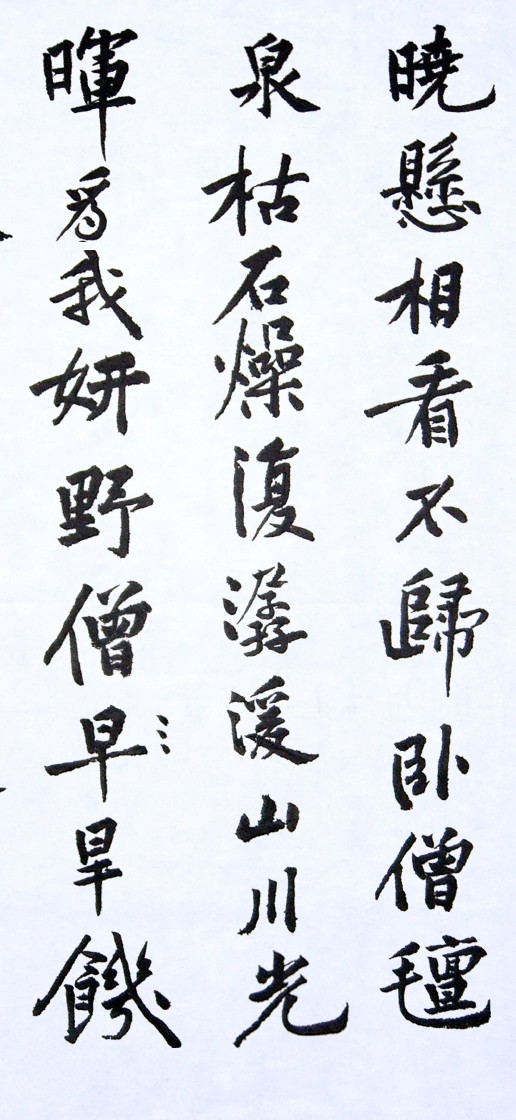 曉懸相看不歸臥僧氈
泉枯石燥復潺湲山川光
暉爲我妍野僧早旱饑